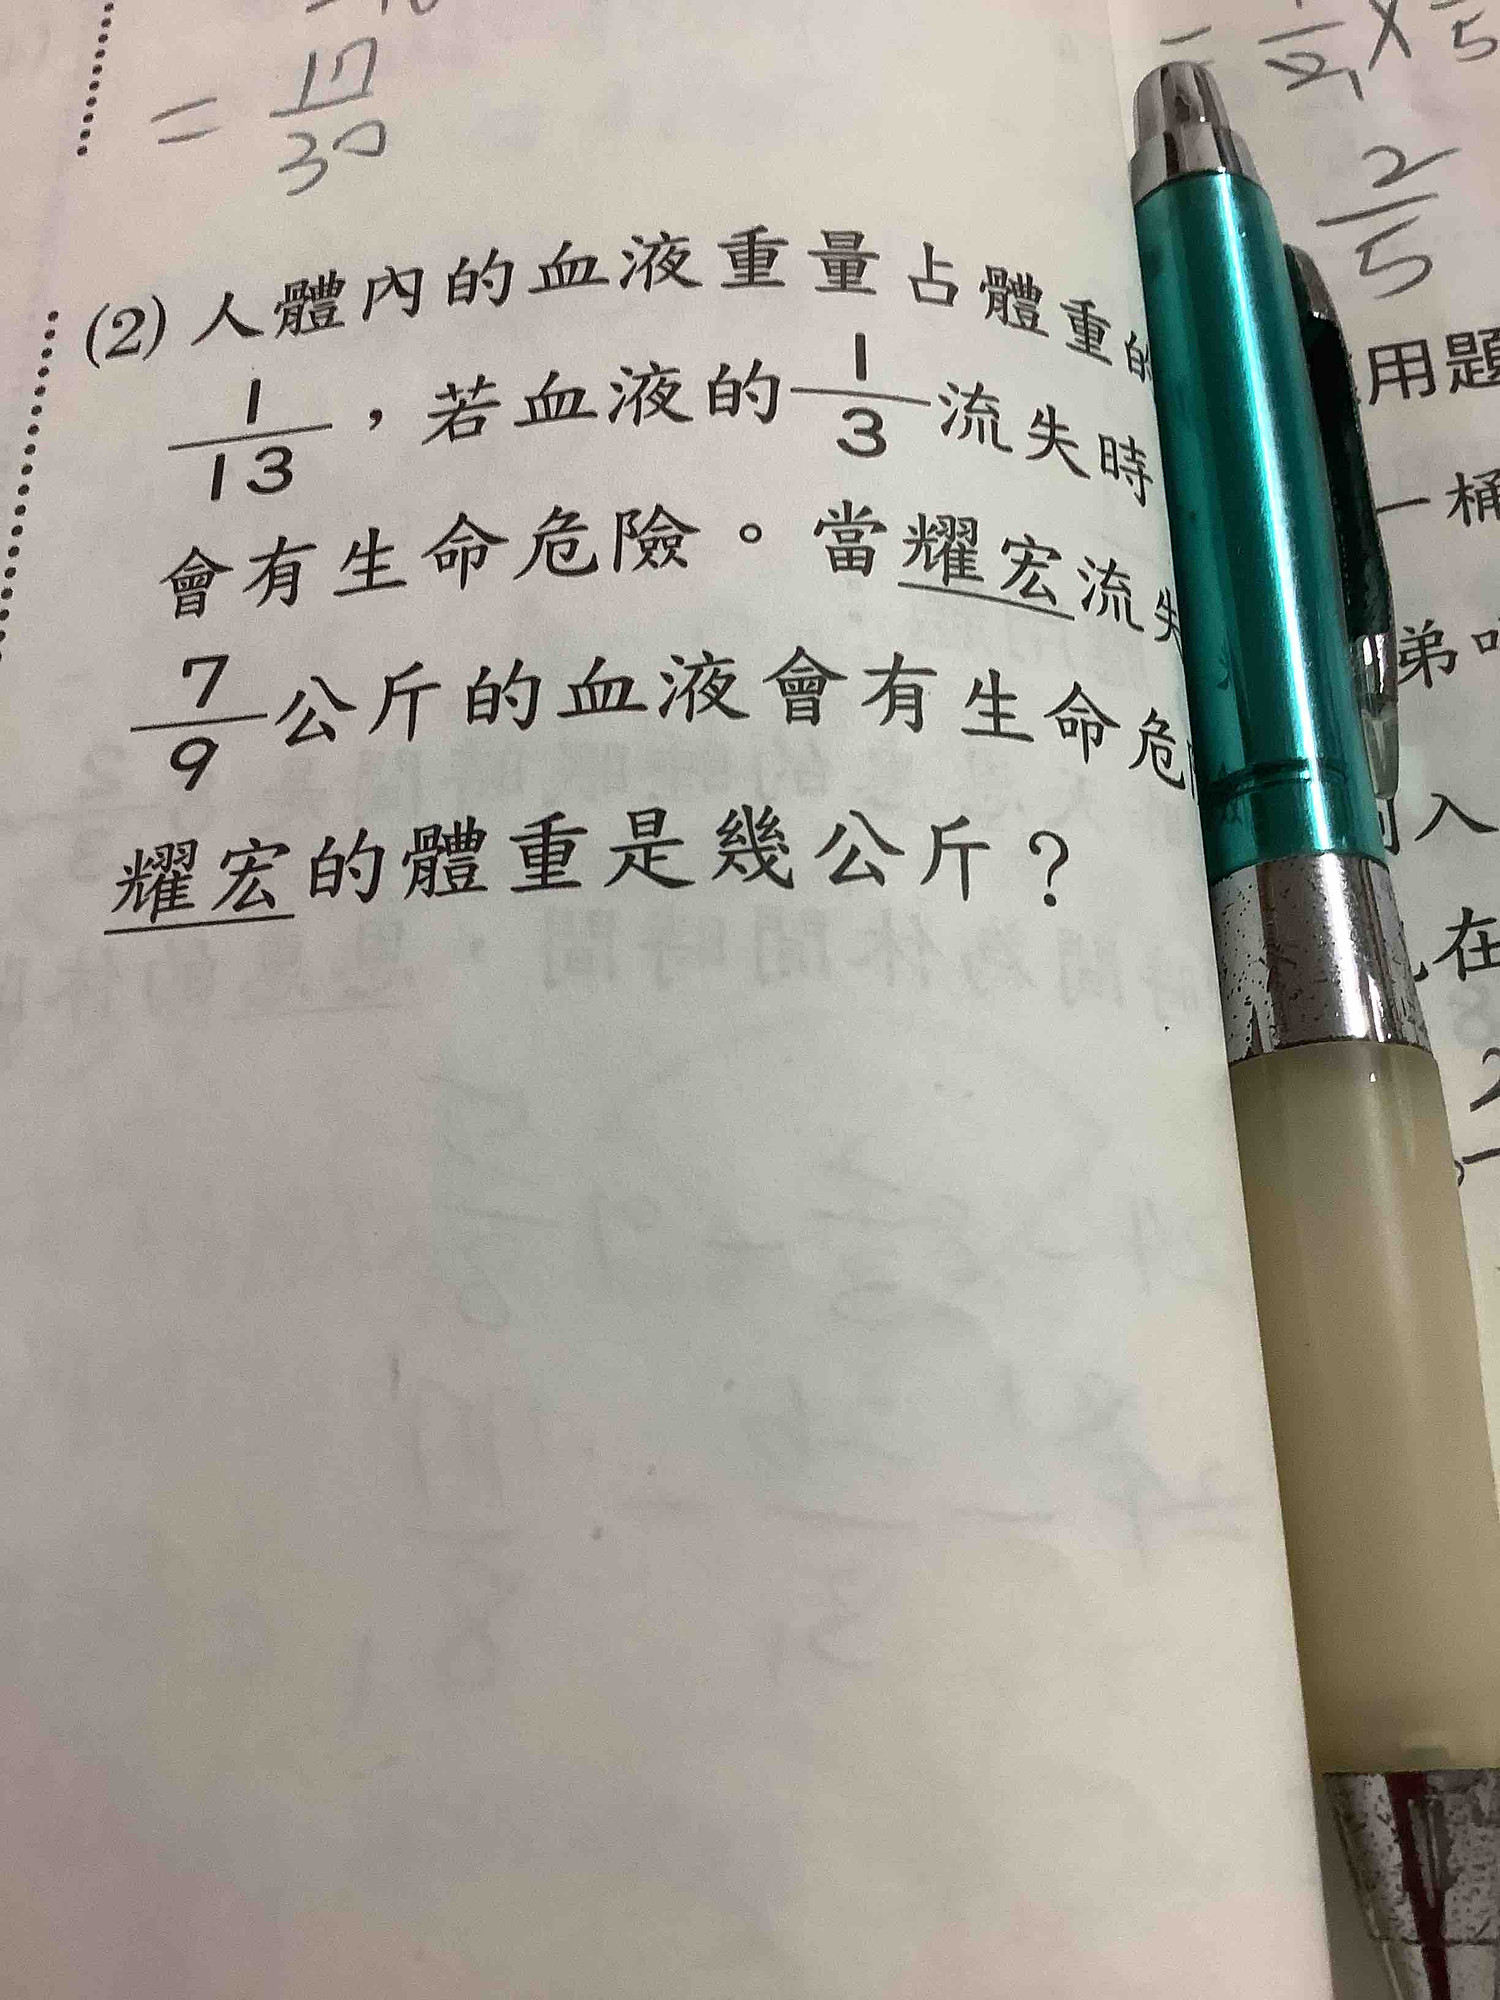 = 17/30
(2) 人體內的血液重量占體重的
1/13，若血液的1/3流失時
會有生命危險。當耀宏流失
7/9公斤的血液會有生命危
耀宏的體重是幾公斤？
2/5
用題
一桶
弟
入
在